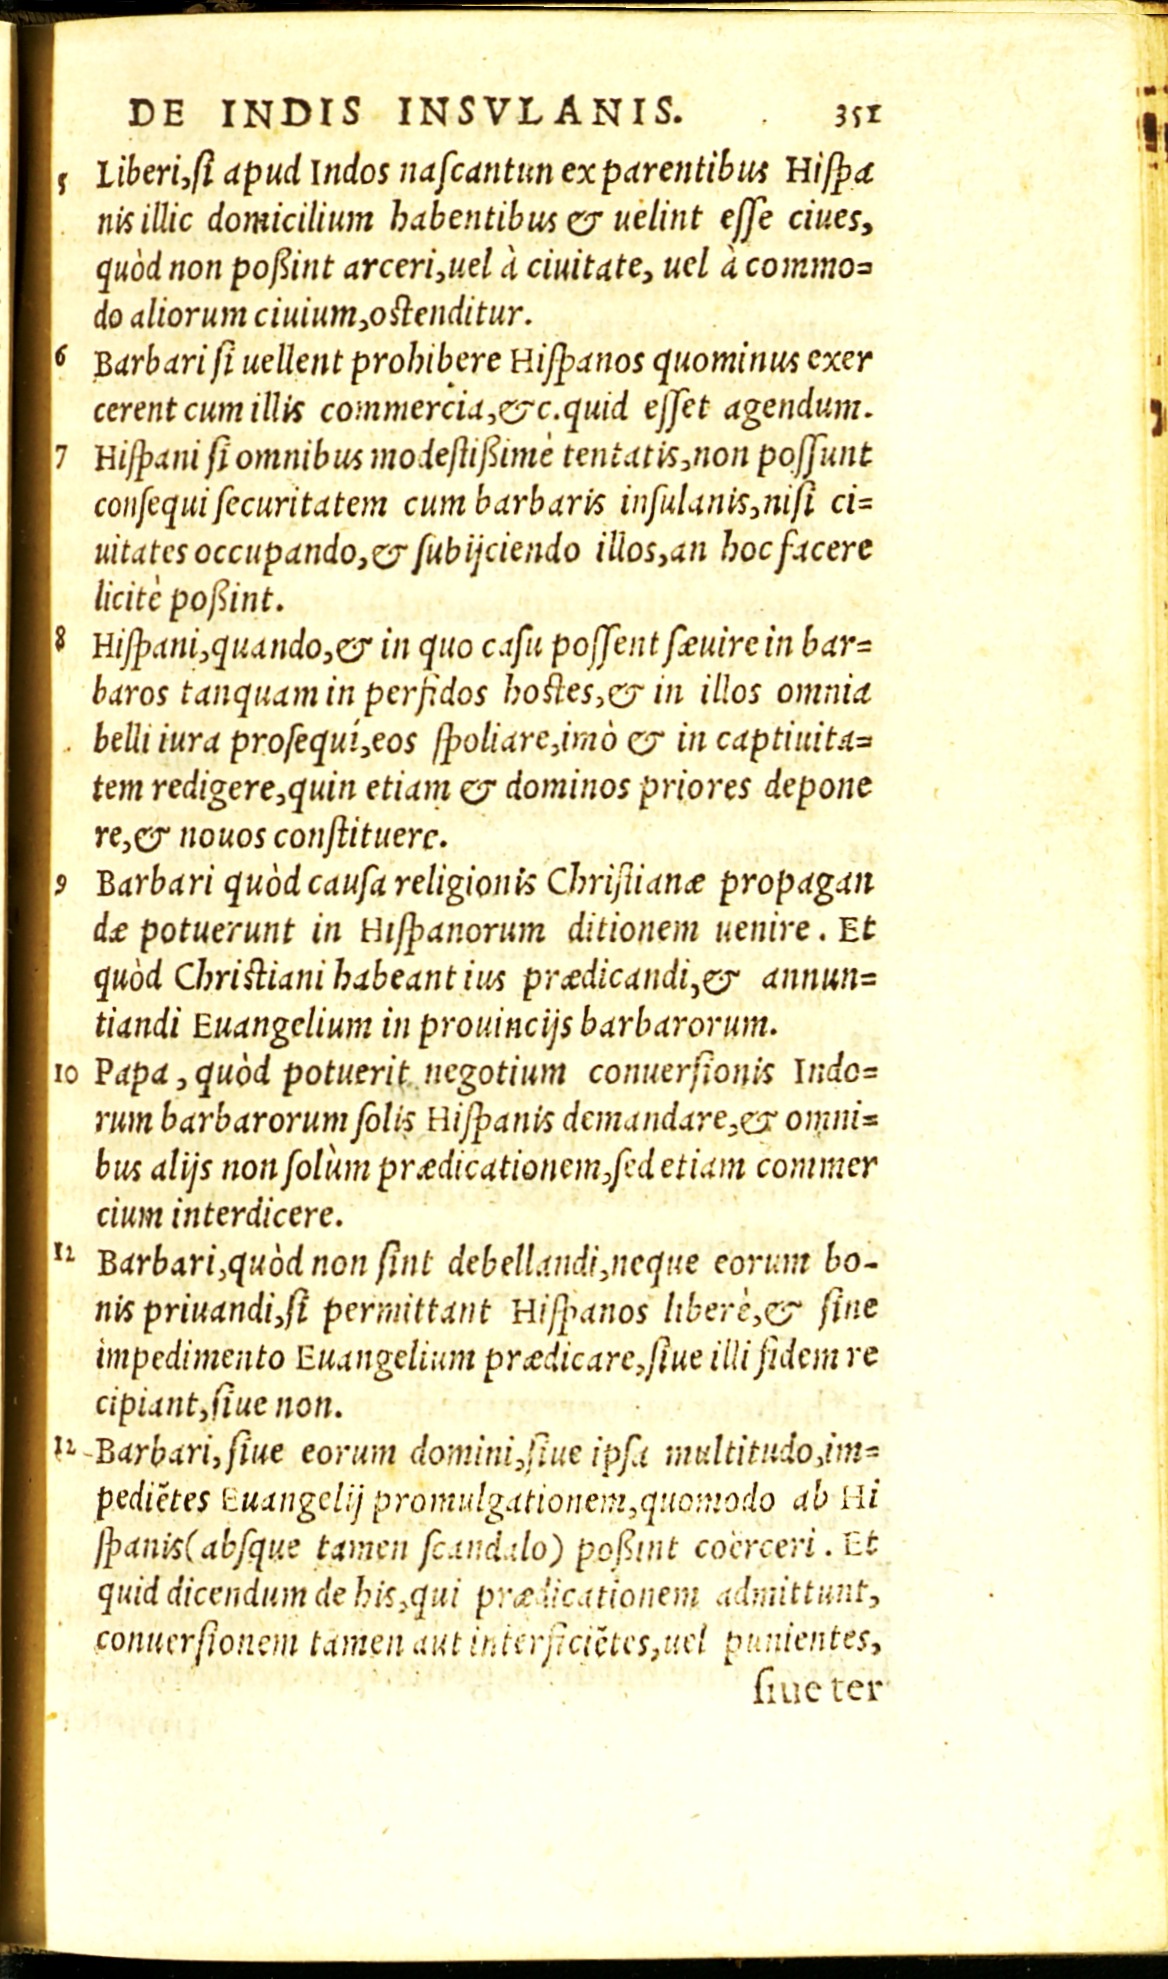 DE INDIS INSVLANIS. 351
5 Liberi,ſi apud Indos naſcantun ex parentibus Hiſpa
nis illic domicilium habentibus & uelint eſſe ciues,
quòd non poßint arceri,uel à ciuitate, uel à commo=
do aliorum ciuium,oſtenditur.
6 Barbari ſi uellent prohibere Hiſpanos quominus exer
cerent cum illis commercia,&c.quid eſſet agendum.
7 Hiſpani ſi omnibus modeſtißimè tentatis,non poſſunt
conſequi ſecuritatem cum barbaris inſulanis,niſi ci=
uitates occupando,& ſubijciendo illos,an hoc facere
licitè poßint.
8 Hiſpani,quando,& in quo caſu poſſent ſæuire in bar=
baros tanquam in perfidos hoſtes,& in illos omnia
belli iura proſequi,eos ſpoliare,imò & in captiuita=
tem redigere,quin etiam & dominos priores depone
re,& nouos conſtituere.
9 Barbari quòd cauſa religionis Chriſtianæ propagan
dæ potuerunt in Hiſpanorum ditionem uenire. Et
quòd Chriſtiani habeant ius prædicandi,& annun=
tiandi Euangelium in prouincijs barbarorum.
10 Papa, quòd potuerit negotium conuerſionis Indo=
rum barbarorum ſolis Hiſpanis demandare,& omni=
bus alijs non ſolùm prædicationem,ſed etiam commer
cium interdicere.
12 Barbari,quòd non ſint debellandi,neque eorum bo-
nis priuandi,ſi permittant Hiſpanos liberè,& ſine
impedimento Euangelium prædicare,ſiue illi fidem re
cipiant,ſiue non.
12 Barbari, ſiue eorum domini,ſiue ipſa multitudo,im=
pediẽtes Euangelij promulgationem,quomodo ab Hi
ſpanis(abſque tamen ſcandalo) poßint coërceri. Et
quid dicendum de his,qui prædicationem admittunt,
conuerſionem tamen aut interficiẽtes,uel punientes,
ſiue ter